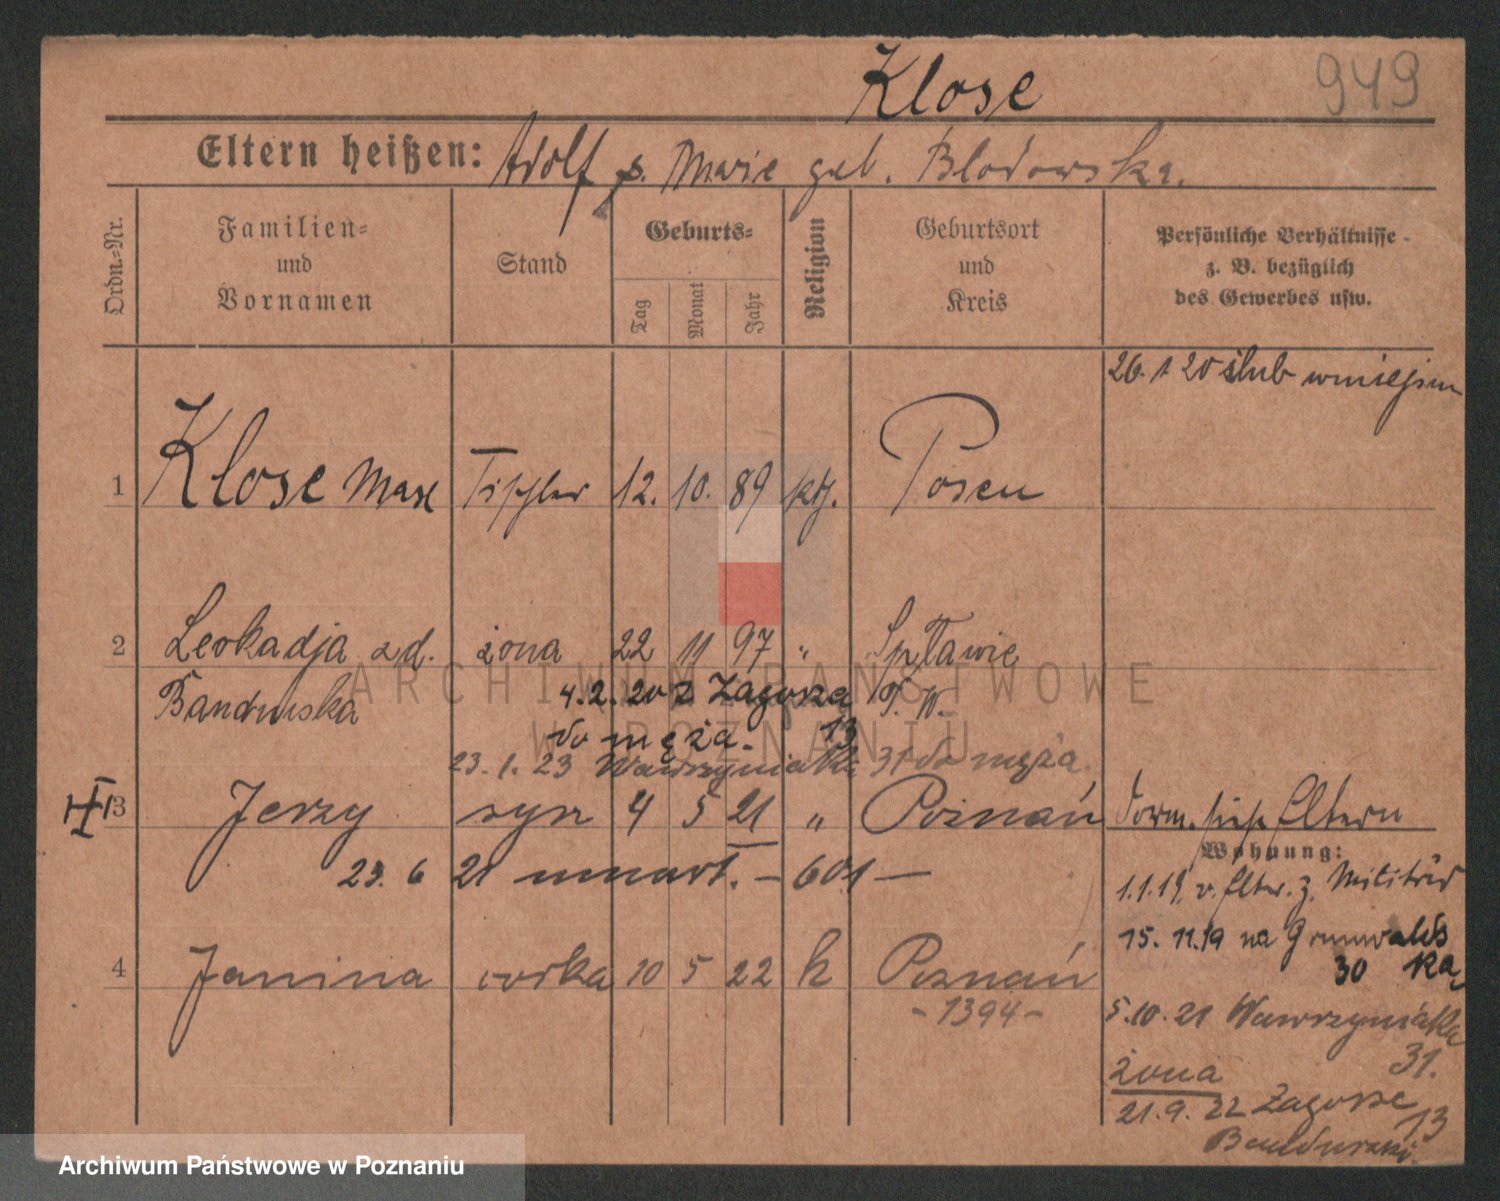 Klose
949
Eltern heißen: Adolf Marie geb. Blodowska.
Ordn.-Nr.
Familien=
und
Vornamen
Stand
Geburts=
Tag
Monat
Jahr
Religion
Geburtsort
und
Kreis
Persönliche Verhältnisse
z. B. bezüglich
des Gewerbes usw.
26. 1 20 ślub
1 Klose Max Tischler 12. 10. 89 kth. Posen
2 Leokadja zd. żona 22 11 97 " Spławie
4.2.20 z Zagorza
P. W.
do męża. 13
23.1.23 Wawrzyniaka 31 do męża.
3 Jerzy syn 4 5 21 " Poznań
Eltern
Wohnung:
23. 6 21 – 601 –
1.1.19. v. Elter. z. Militär
15. 11. 19 na Grunwaldz
30 ka
4 Janina córka 10 5 22 k Poznań
- 1394 -
5.10.21 Wawrzyniaka
31.
żona
21.9.22 Zagorze
13
ARCHIWUM PAŃSTWOWE
W POZNANIU
Archiwum Państwowe w Poznaniu